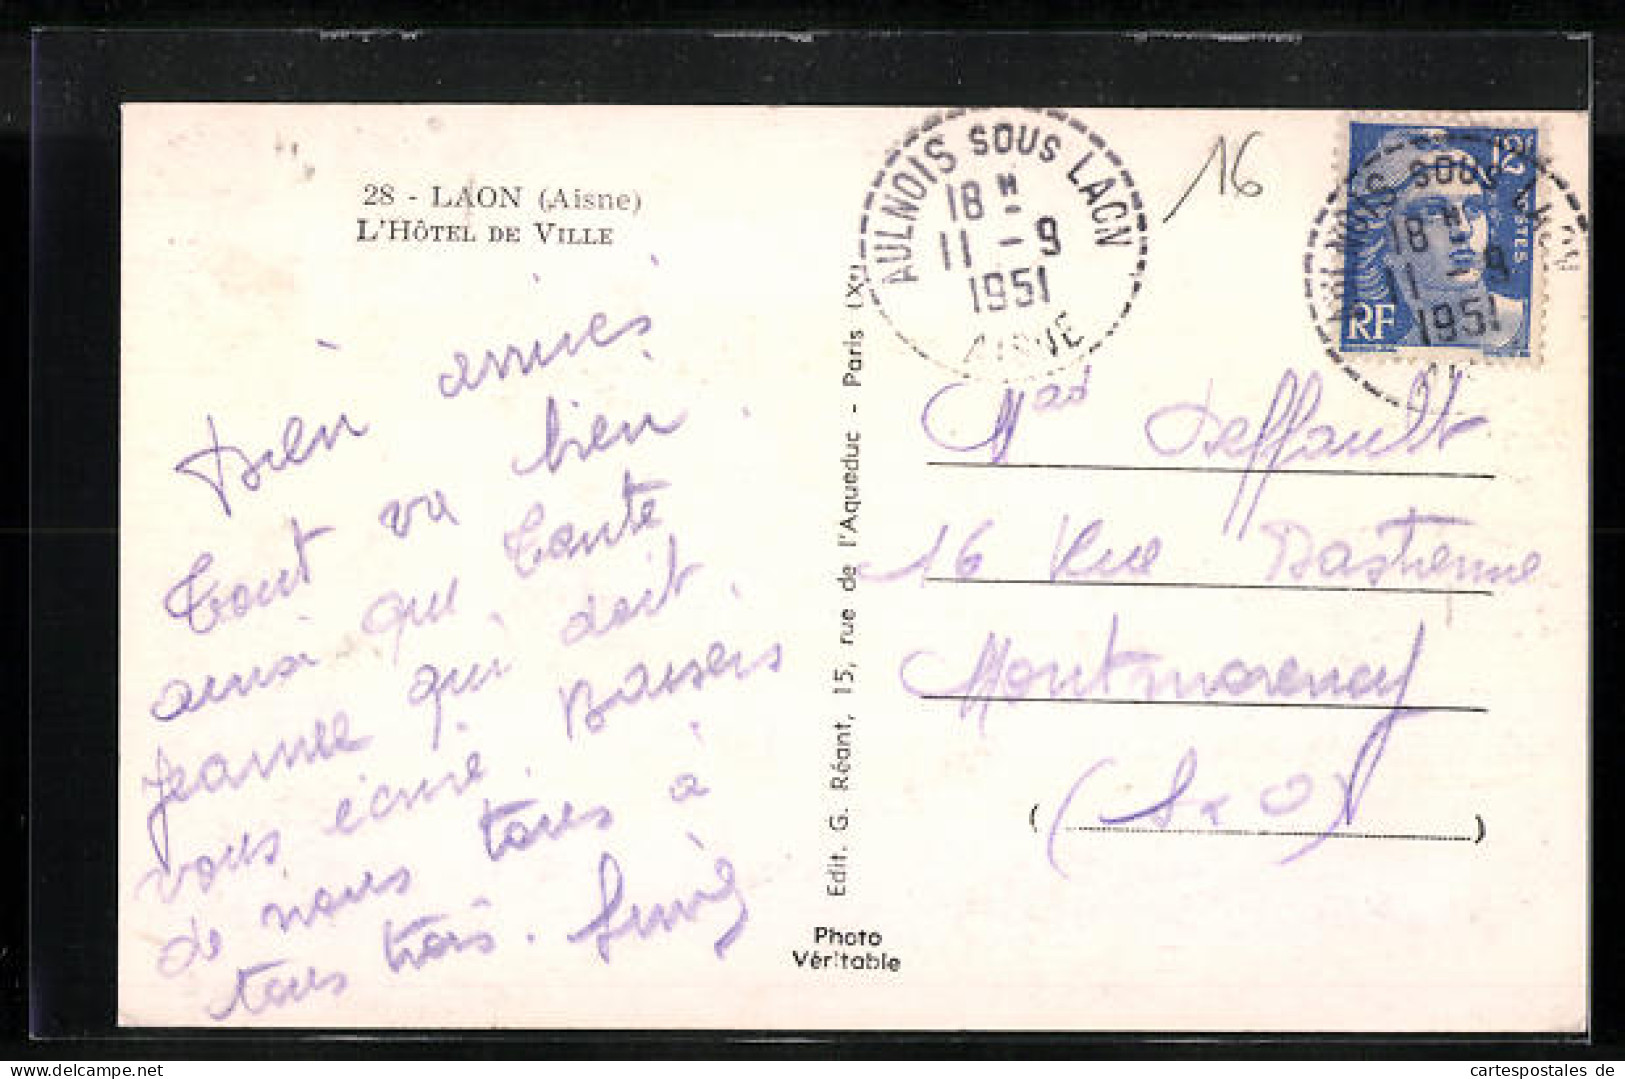 28 - LAON (Aisne)
L'HÔTEL DE VILLE
Bien arrivés
Tout va bien.
ainsi que Tante
Jeanne qui doit
vous écrire. Baisers
de nous tous à
tous trois.
Edit. G. Réant, 15, rue de l'Aqueduc - Paris (Xe)
Photo
Véritable
AULNOIS SOUS LAON
18 H
11 - 9
1951
AISNE
16
12F
POSTES
RF
AULNOIS SOUS LAON
18 H
11 - 9
1951
Deffault
16 Rue
Montmorency
(S & O)
cartespostales de